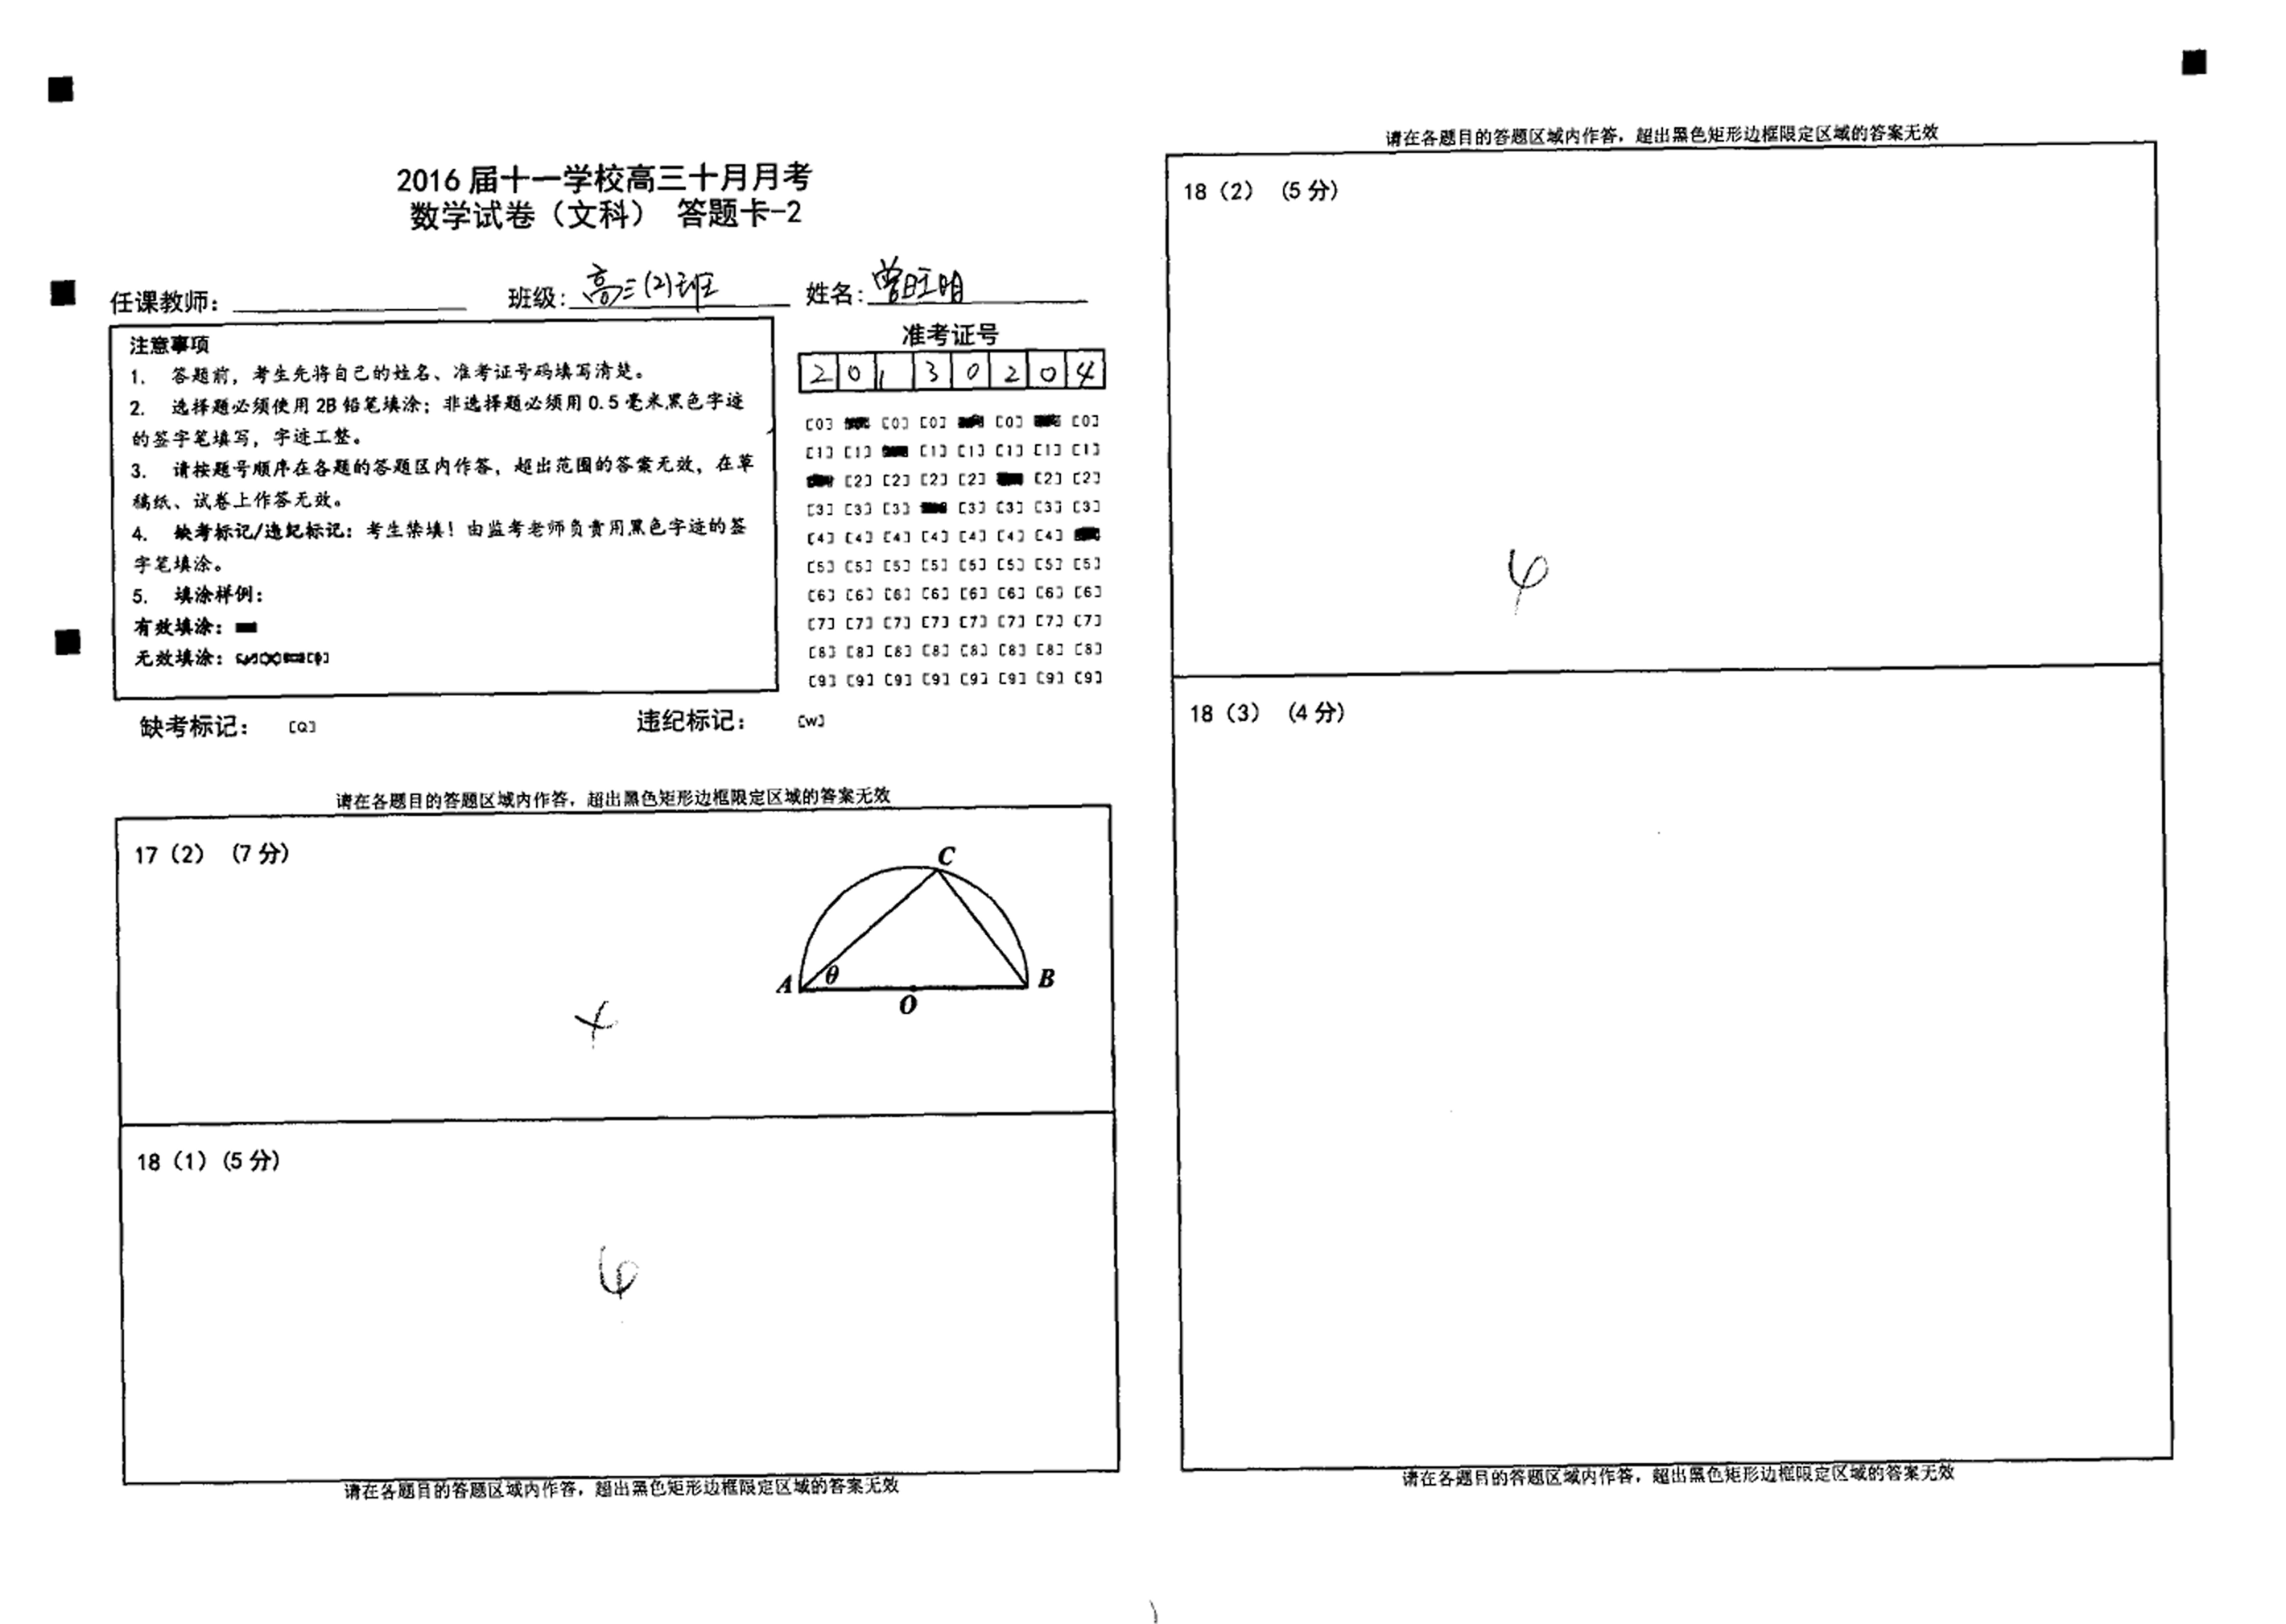 2016 届十一学校高三十月月考
数学试卷（文科） 答题卡-2
任课教师：
班级：高三(2)班
姓名：曾旺明
准考证号
2 0 1 3 0 2 0 4
注意事项
1. 答题前，考生先将自己的姓名、准考证号码填写清楚。
2. 选择题必须使用 2B 铅笔填涂；非选择题必须用 0.5 毫米黑色字迹
的签字笔填写，字迹工整。
3. 请按题号顺序在各题的答题区内作答，超出范围的答案无效，在草
稿纸、试卷上作答无效。
4. 缺考标记/违纪标记：考生禁填！由监考老师负责用黑色字迹的签
字笔填涂。
5. 填涂样例：
有效填涂：
无效填涂：
[0] [0] [0] [0] [0]
[1] [1] [1] [1] [1] [1] [1]
[2] [2] [2] [2] [2] [2]
[3] [3] [3] [3] [3] [3] [3]
[4] [4] [4] [4] [4] [4] [4]
[5] [5] [5] [5] [5] [5] [5] [5]
[6] [6] [6] [6] [6] [6] [6] [6]
[7] [7] [7] [7] [7] [7] [7] [7]
[8] [8] [8] [8] [8] [8] [8] [8]
[9] [9] [9] [9] [9] [9] [9] [9]
缺考标记： [Q] 违纪标记： [W]
请在各题目的答题区域内作答，超出黑色矩形边框限定区域的答案无效
17（2）（7 分）
C
A θ
O
B
18（1）(5 分)
请在各题目的答题区域内作答，超出黑色矩形边框限定区域的答案无效
请在各题目的答题区域内作答，超出黑色矩形边框限定区域的答案无效
18（2）（5 分）
18（3）（4 分）
请在各题目的答题区域内作答，超出黑色矩形边框限定区域的答案无效